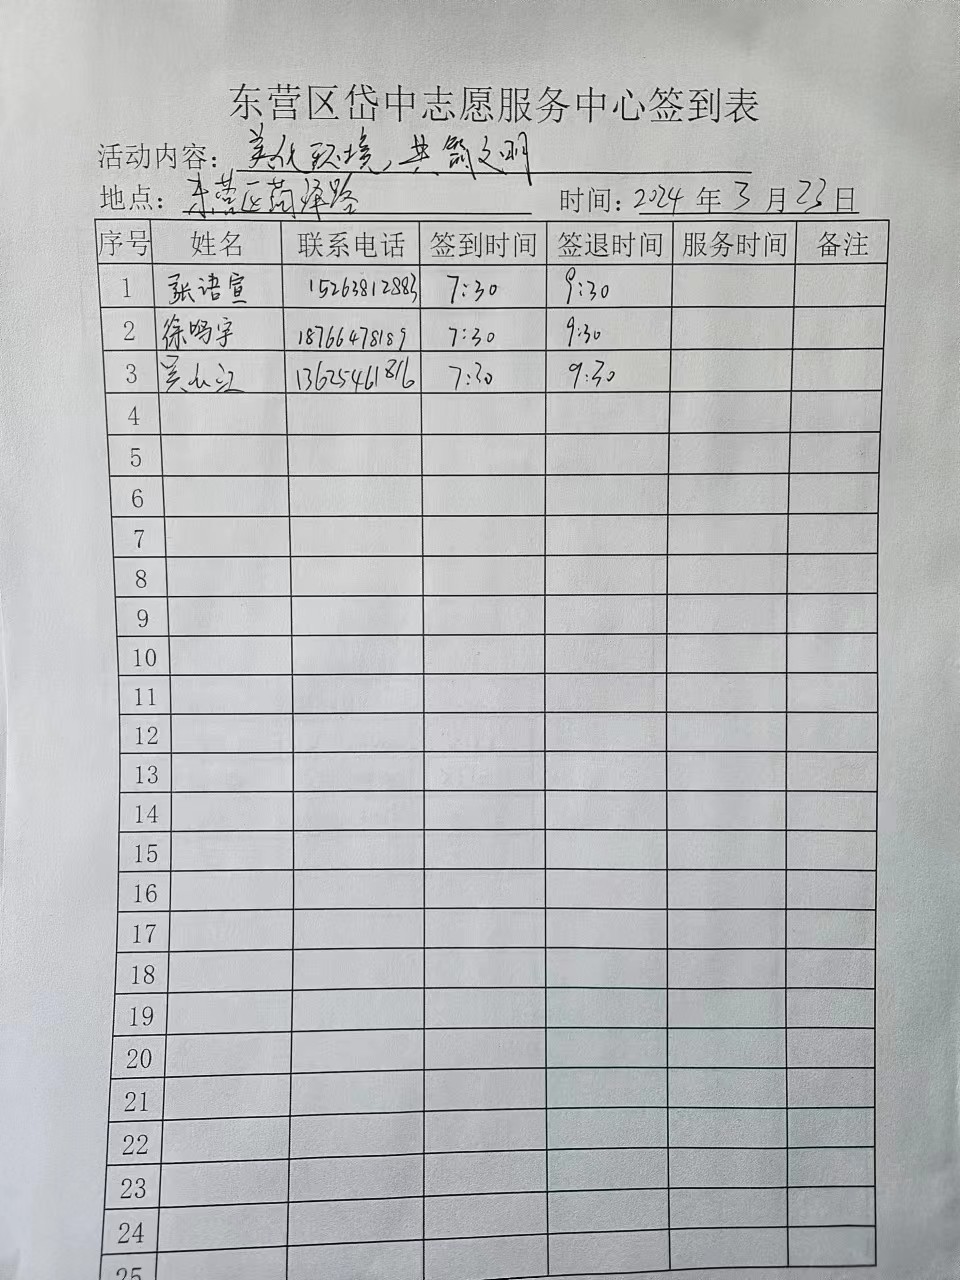 东营区岱中志愿服务中心签到表
活动内容：美化环境，共筑文明
地点：东营区菏泽路 时间：2024年3月23日
序号 姓名 联系电话 签到时间 签退时间 服务时间 备注
1 张语宣 15263812883 7:30 9:30
2 徐鸣宇 18766478189 7:30 9:30
3 吴 江 13625461816 7:30 9:30
4
5
6
7
8
9
10
11
12
13
14
15
16
17
18
19
20
21
22
23
24
25